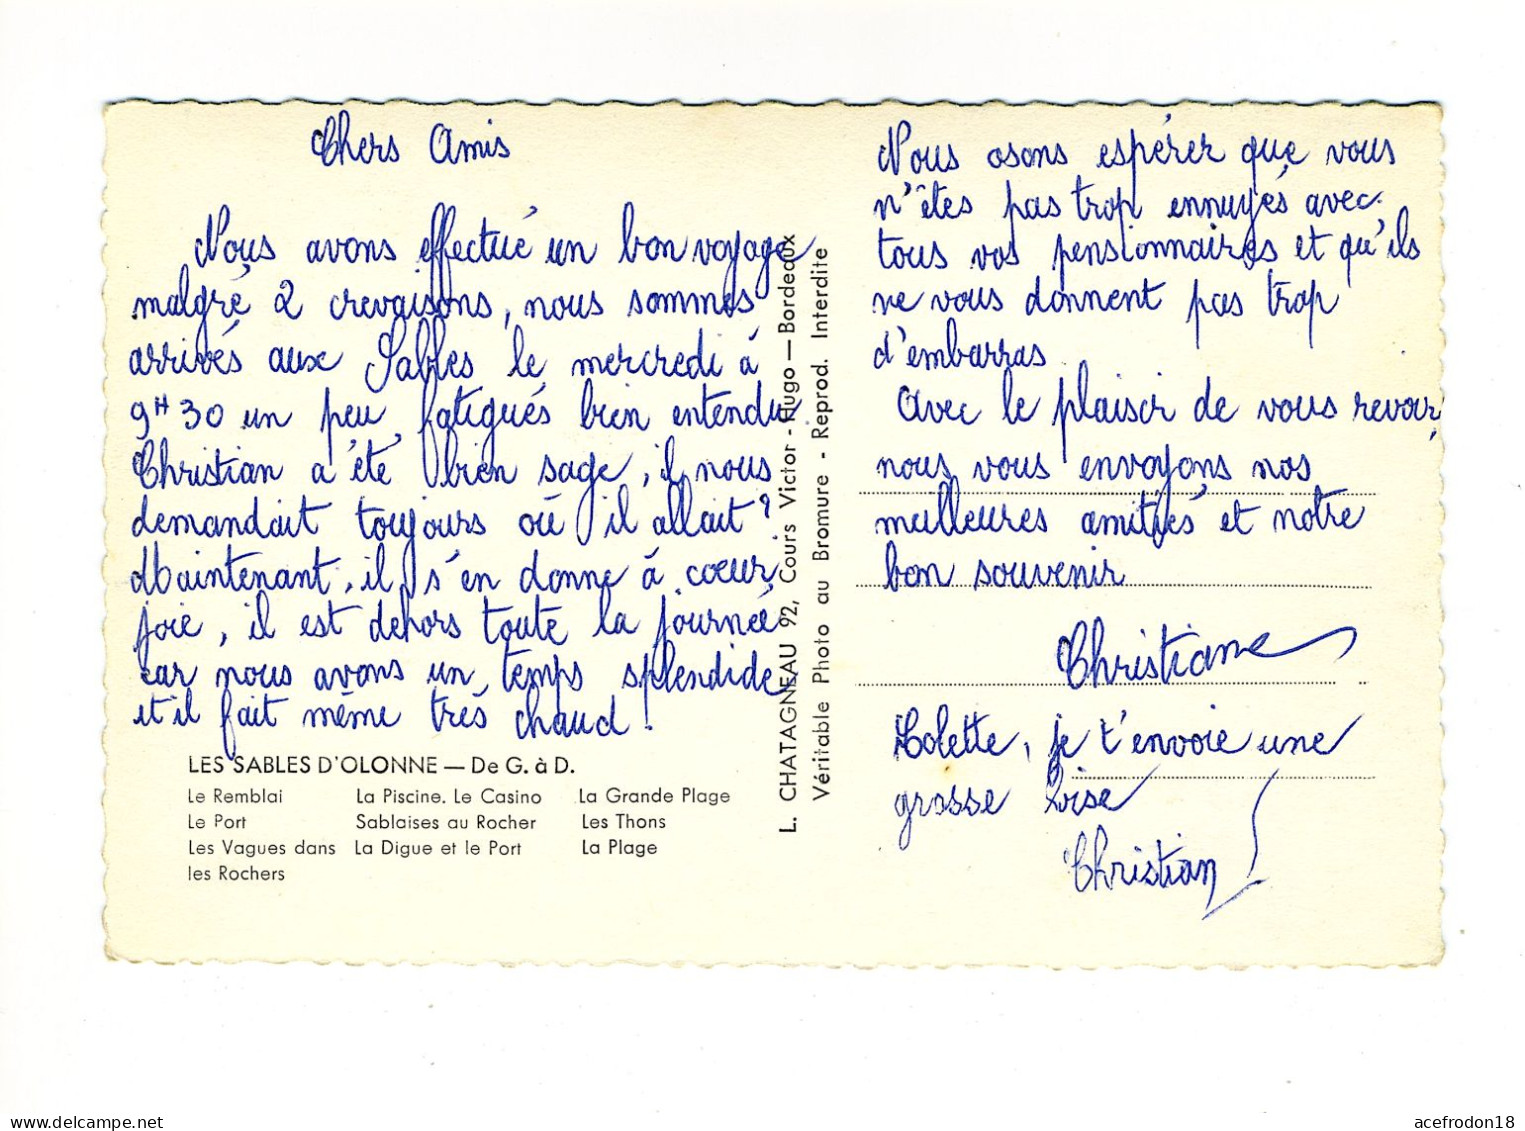 Chers Amis
Nous avons effectué un bon voyage
malgré 2 crevaisons, nous sommes
arrivés aux Sables le mercredi à
9H30 un peu fatigués bien entendu
Christian a été bien sage, il nous
demandait toujours où il allait ?
Maintenant, il s'en donne à coeur
joie, il est dehors toute la journée
car nous avons un temps splendide
et il fait même très chaud !
LES SABLES D'OLONNE — De G. à D.
Le Remblai La Piscine. Le Casino La Grande Plage
Le Port Sablaises au Rocher Les Thons
Les Vagues dans La Digue et le Port La Plage
les Rochers
L. CHATAGNEAU 92, Cours Victor - Hugo — Bordeaux
Véritable Photo au Bromure - Reprod. Interdite
Nous osons espérer que vous
n'êtes pas trop ennuyés avec
tous vos pensionnaires et qu'ils
ne vous donnent pas trop
d'embarras
Avec le plaisir de vous revoir,
nous vous envoyons nos
meilleures amitiés et notre
bon souvenir
Christiane
Colette, je t'envoie une
grosse bise
Christian
acefrodon18